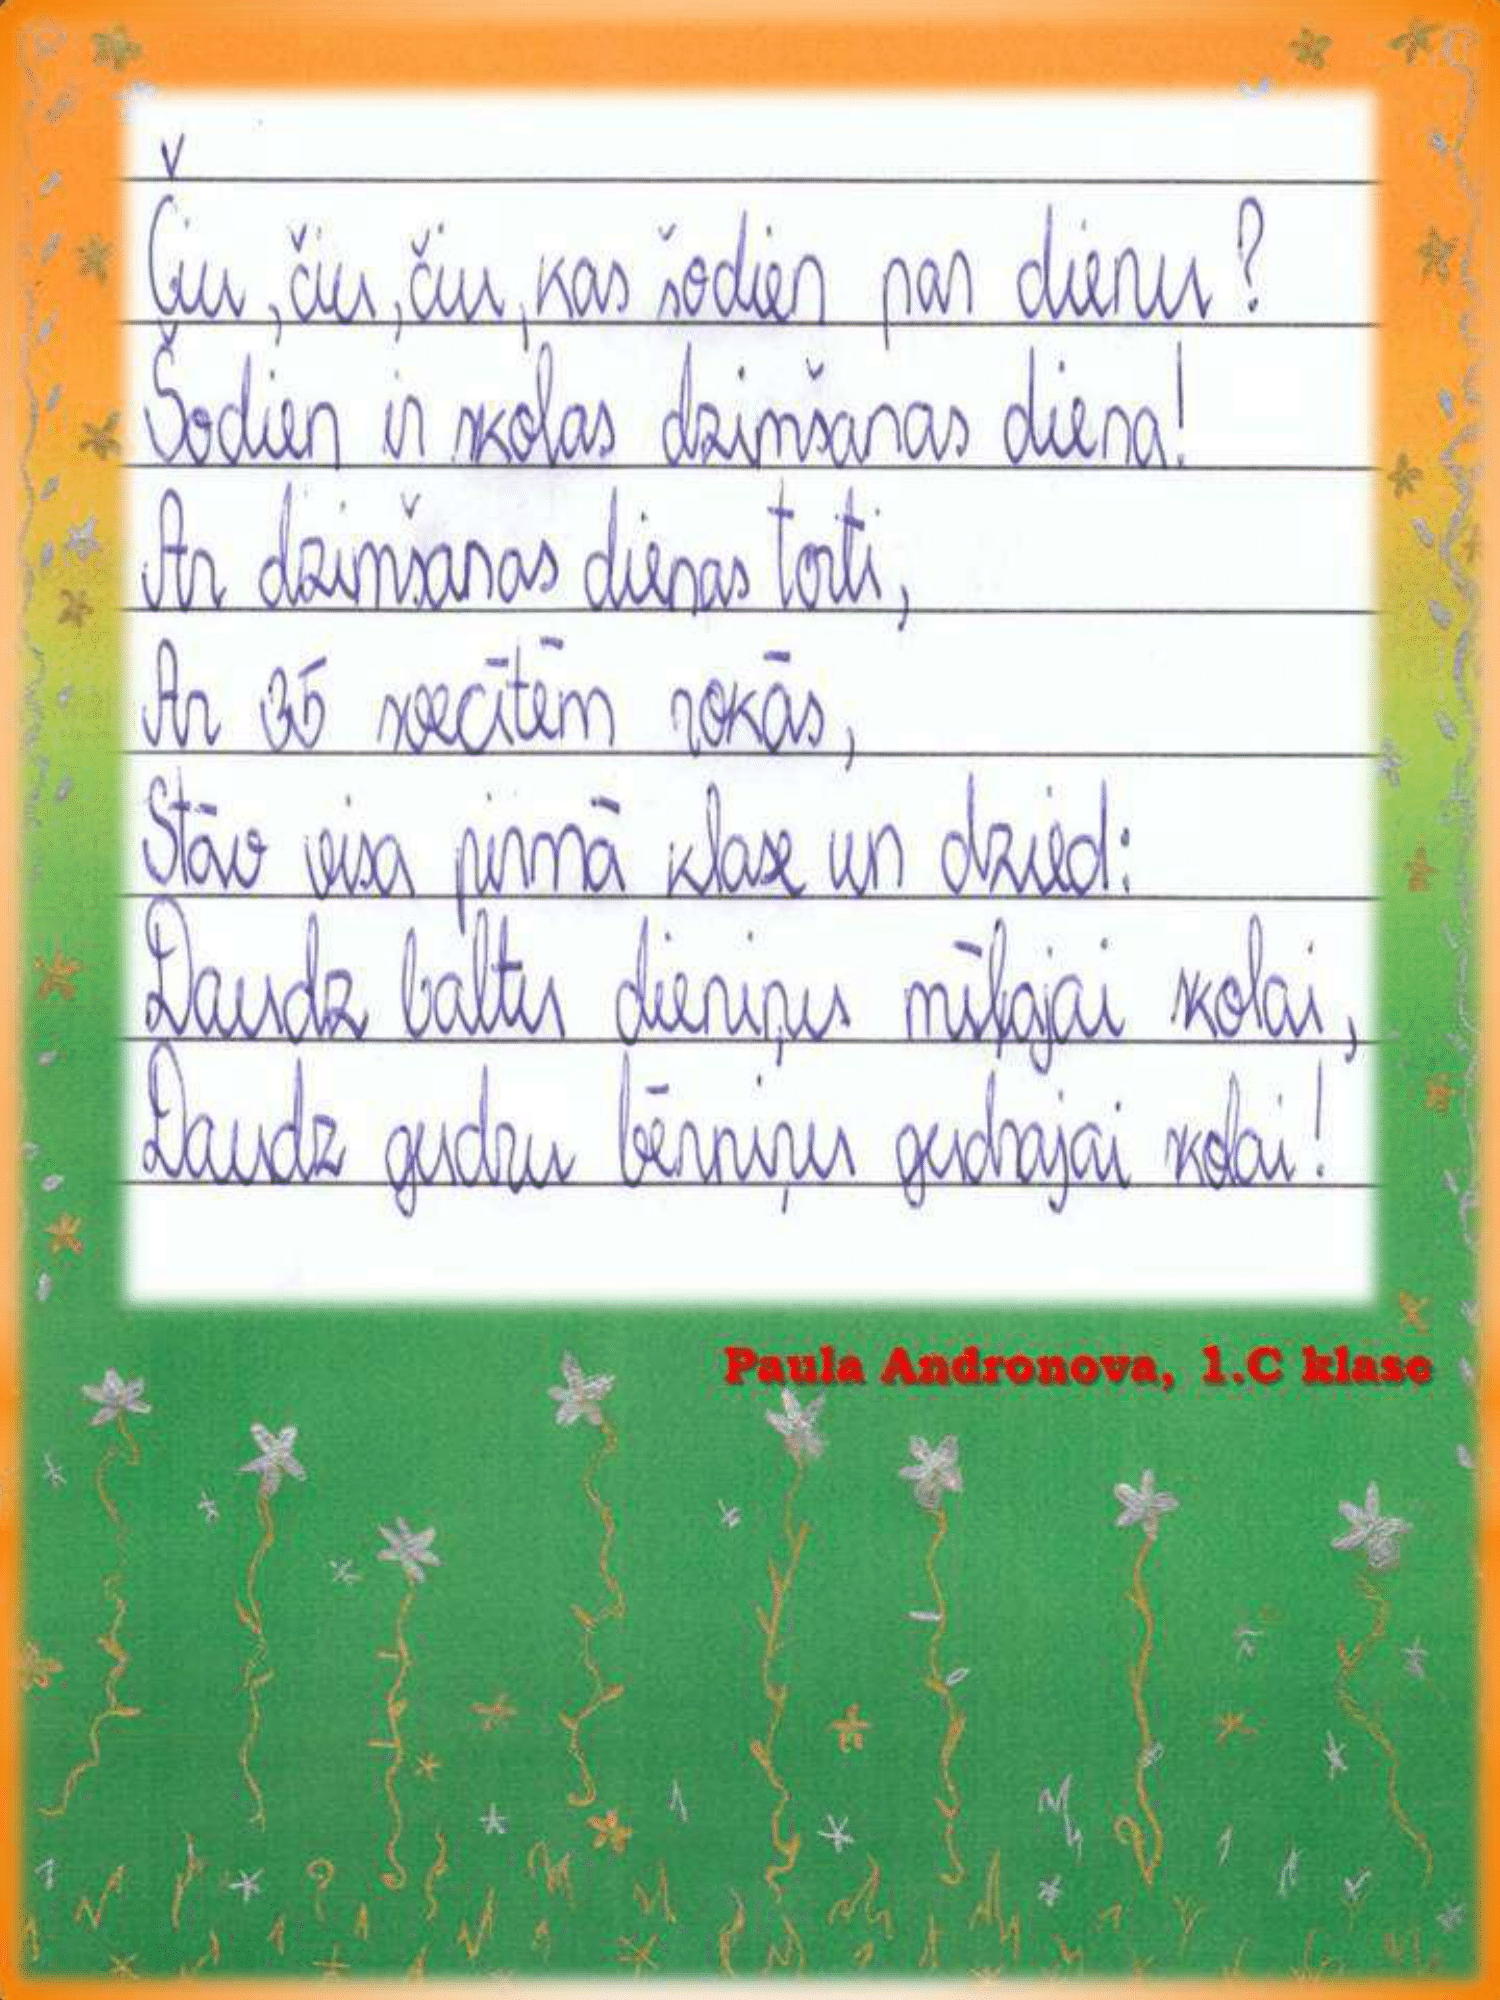 Čiu, čiu, čiu, kas šodien par dienu?
Šodien ir skolas dzimšanas diena!
Ar dzimšanas dienas torti,
Ar 35 svecītēm rokās,
Stāv visa pirmā klase un dzied:
Daudz baltu dieniņus mīļajai skolai,
Daudz gudru bērniņus gudrajai skolai!
Paula Andronova, 1.C klase